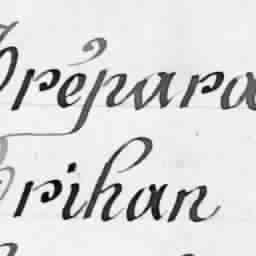 Prépara
rihan